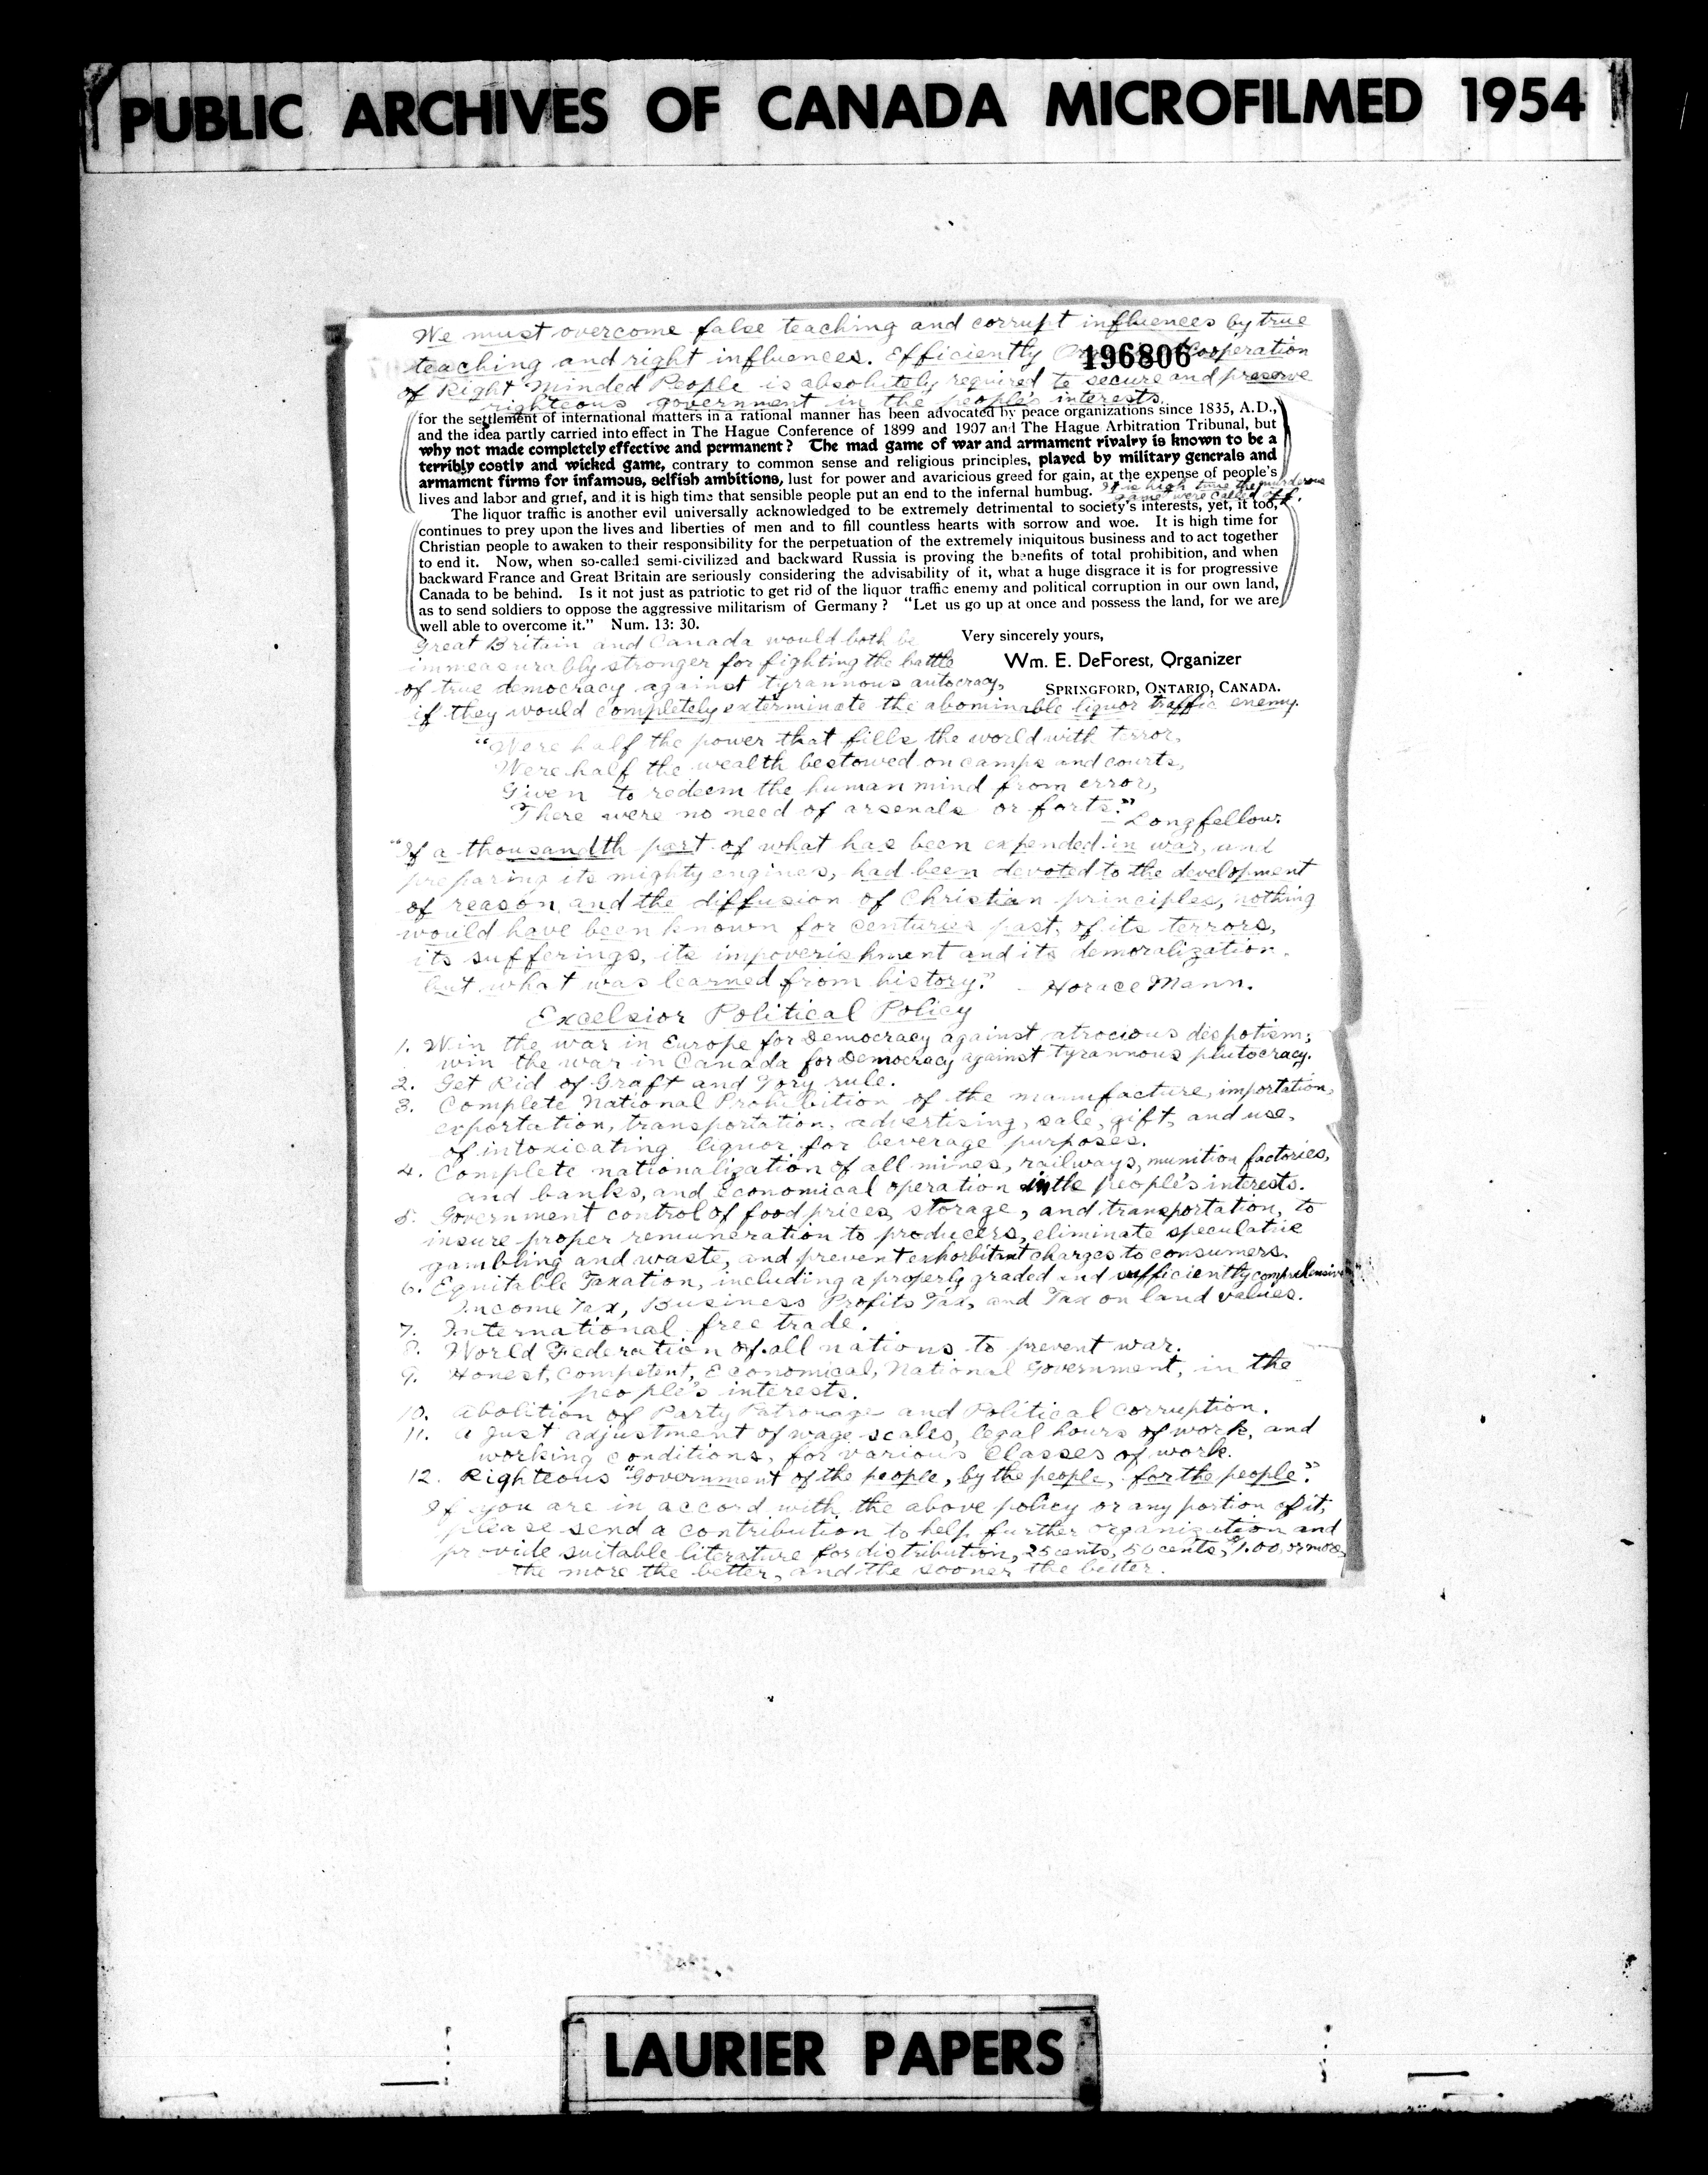 PUBLIC ARCHIVES OF CANADA MICROFILMED 1954
We must overcome false teaching and corrupt influences by true
teaching and right influences. Efficiently Cooperation
196806
of Right Minded People is absolutely required to secure and preserve
righteous government in the people's interests.
for the settlement of international matters in a rational manner has been advocated by peace organizations since 1835, A.D.,
and the idea partly carried into effect in The Hague Conference of 1899 and 1907 and The Hague Arbitration Tribunal, but
why not made completely effective and permanent? The mad game of war and armament rivalry is known to be a
terribly costly and wicked game, contrary to common sense and religious principles, played by military generals and
armament firms for infamous, selfish ambitions, lust for power and avaricious greed for gain, at the expense of people's
lives and labor and grief, and it is high time that sensible people put an end to the infernal humbug. It is high time the murderous
game were called off.
The liquor traffic is another evil universally acknowledged to be extremely detrimental to society's interests, yet, it too,
continues to prey upon the lives and liberties of men and to fill countless hearts with sorrow and woe. It is high time for
Christian people to awaken to their responsibility for the perpetuation of the extremely iniquitous business and to act together
to end it. Now, when so-called semi-civilized and backward Russia is proving the benefits of total prohibition, and when
backward France and Great Britain are seriously considering the advisability of it, what a huge disgrace it is for progressive
Canada to be behind. Is it not just as patriotic to get rid of the liquor traffic enemy and political corruption in our own land,
as to send soldiers to oppose the aggressive militarism of Germany? "Let us go up at once and possess the land, for we are
well able to overcome it." Num. 13: 30.
Very sincerely yours,
Wm. E. DeForest, Organizer
SPRINGFORD, ONTARIO, CANADA.
Great Britain and Canada would both be
immeasurably stronger for fighting the battle
of true democracy against tyrannous autocracy,
if they would completely exterminate the abominable liquor traffic enemy.
"Were half the power that fills the world with terror,
Were half the wealth bestowed on camps and courts,
Given to redeem the human mind from error,
There were no need of arsenals or forts."
- Longfellow.
"If a thousandth part of what has been expended in war, and
preparing its mighty engines, had been devoted to the development
of reason and the diffusion of Christian principles, nothing
would have been known for centuries past, of its terrors,
its sufferings, its impoverishment and its demoralization.
but what was learned from history." - Horace Mann.
Excelsior Political Policy
1. Win the war in Europe for Democracy against atrocious despotism;
win the war in Canada for Democracy against tyrannous plutocracy.
2. Get Rid of Graft and Tory rule.
3. Complete National Prohibition of the manufacture, importation,
exportation, transportation, advertising, sale, gift, and use,
of intoxicating liquor for beverage purposes.
4. Complete nationalization of all mines, railways, munition factories,
and banks, and economical operation in the people's interests.
5. Government control of food prices, storage, and transportation, to
insure proper remuneration to producers, eliminate speculative
gambling and waste, and prevent exhorbitant charges to consumers.
6. Equitable Taxation, including a properly graded and sufficiently comprehensive
Income Tax, Business Profits Tax, and Tax on land values.
7. International free trade.
8. World Federation of all nations to prevent war.
9. Honest, Competent, Economical, National Government, in the
people's interests.
10. Abolition of Party Patronage and Political Corruption.
11. A just adjustment of wage scales, legal hours of work, and
working conditions, for various Classes of work.
12. Righteous "Government of the people, by the people, for the people."
If you are in accord with the above policy or any portion of it,
please send a contribution to help further organization and
provide suitable literature for distribution, 25 cents, 50 cents, $1.00, or more,
the more the better, and the sooner the better.
LAURIER PAPERS